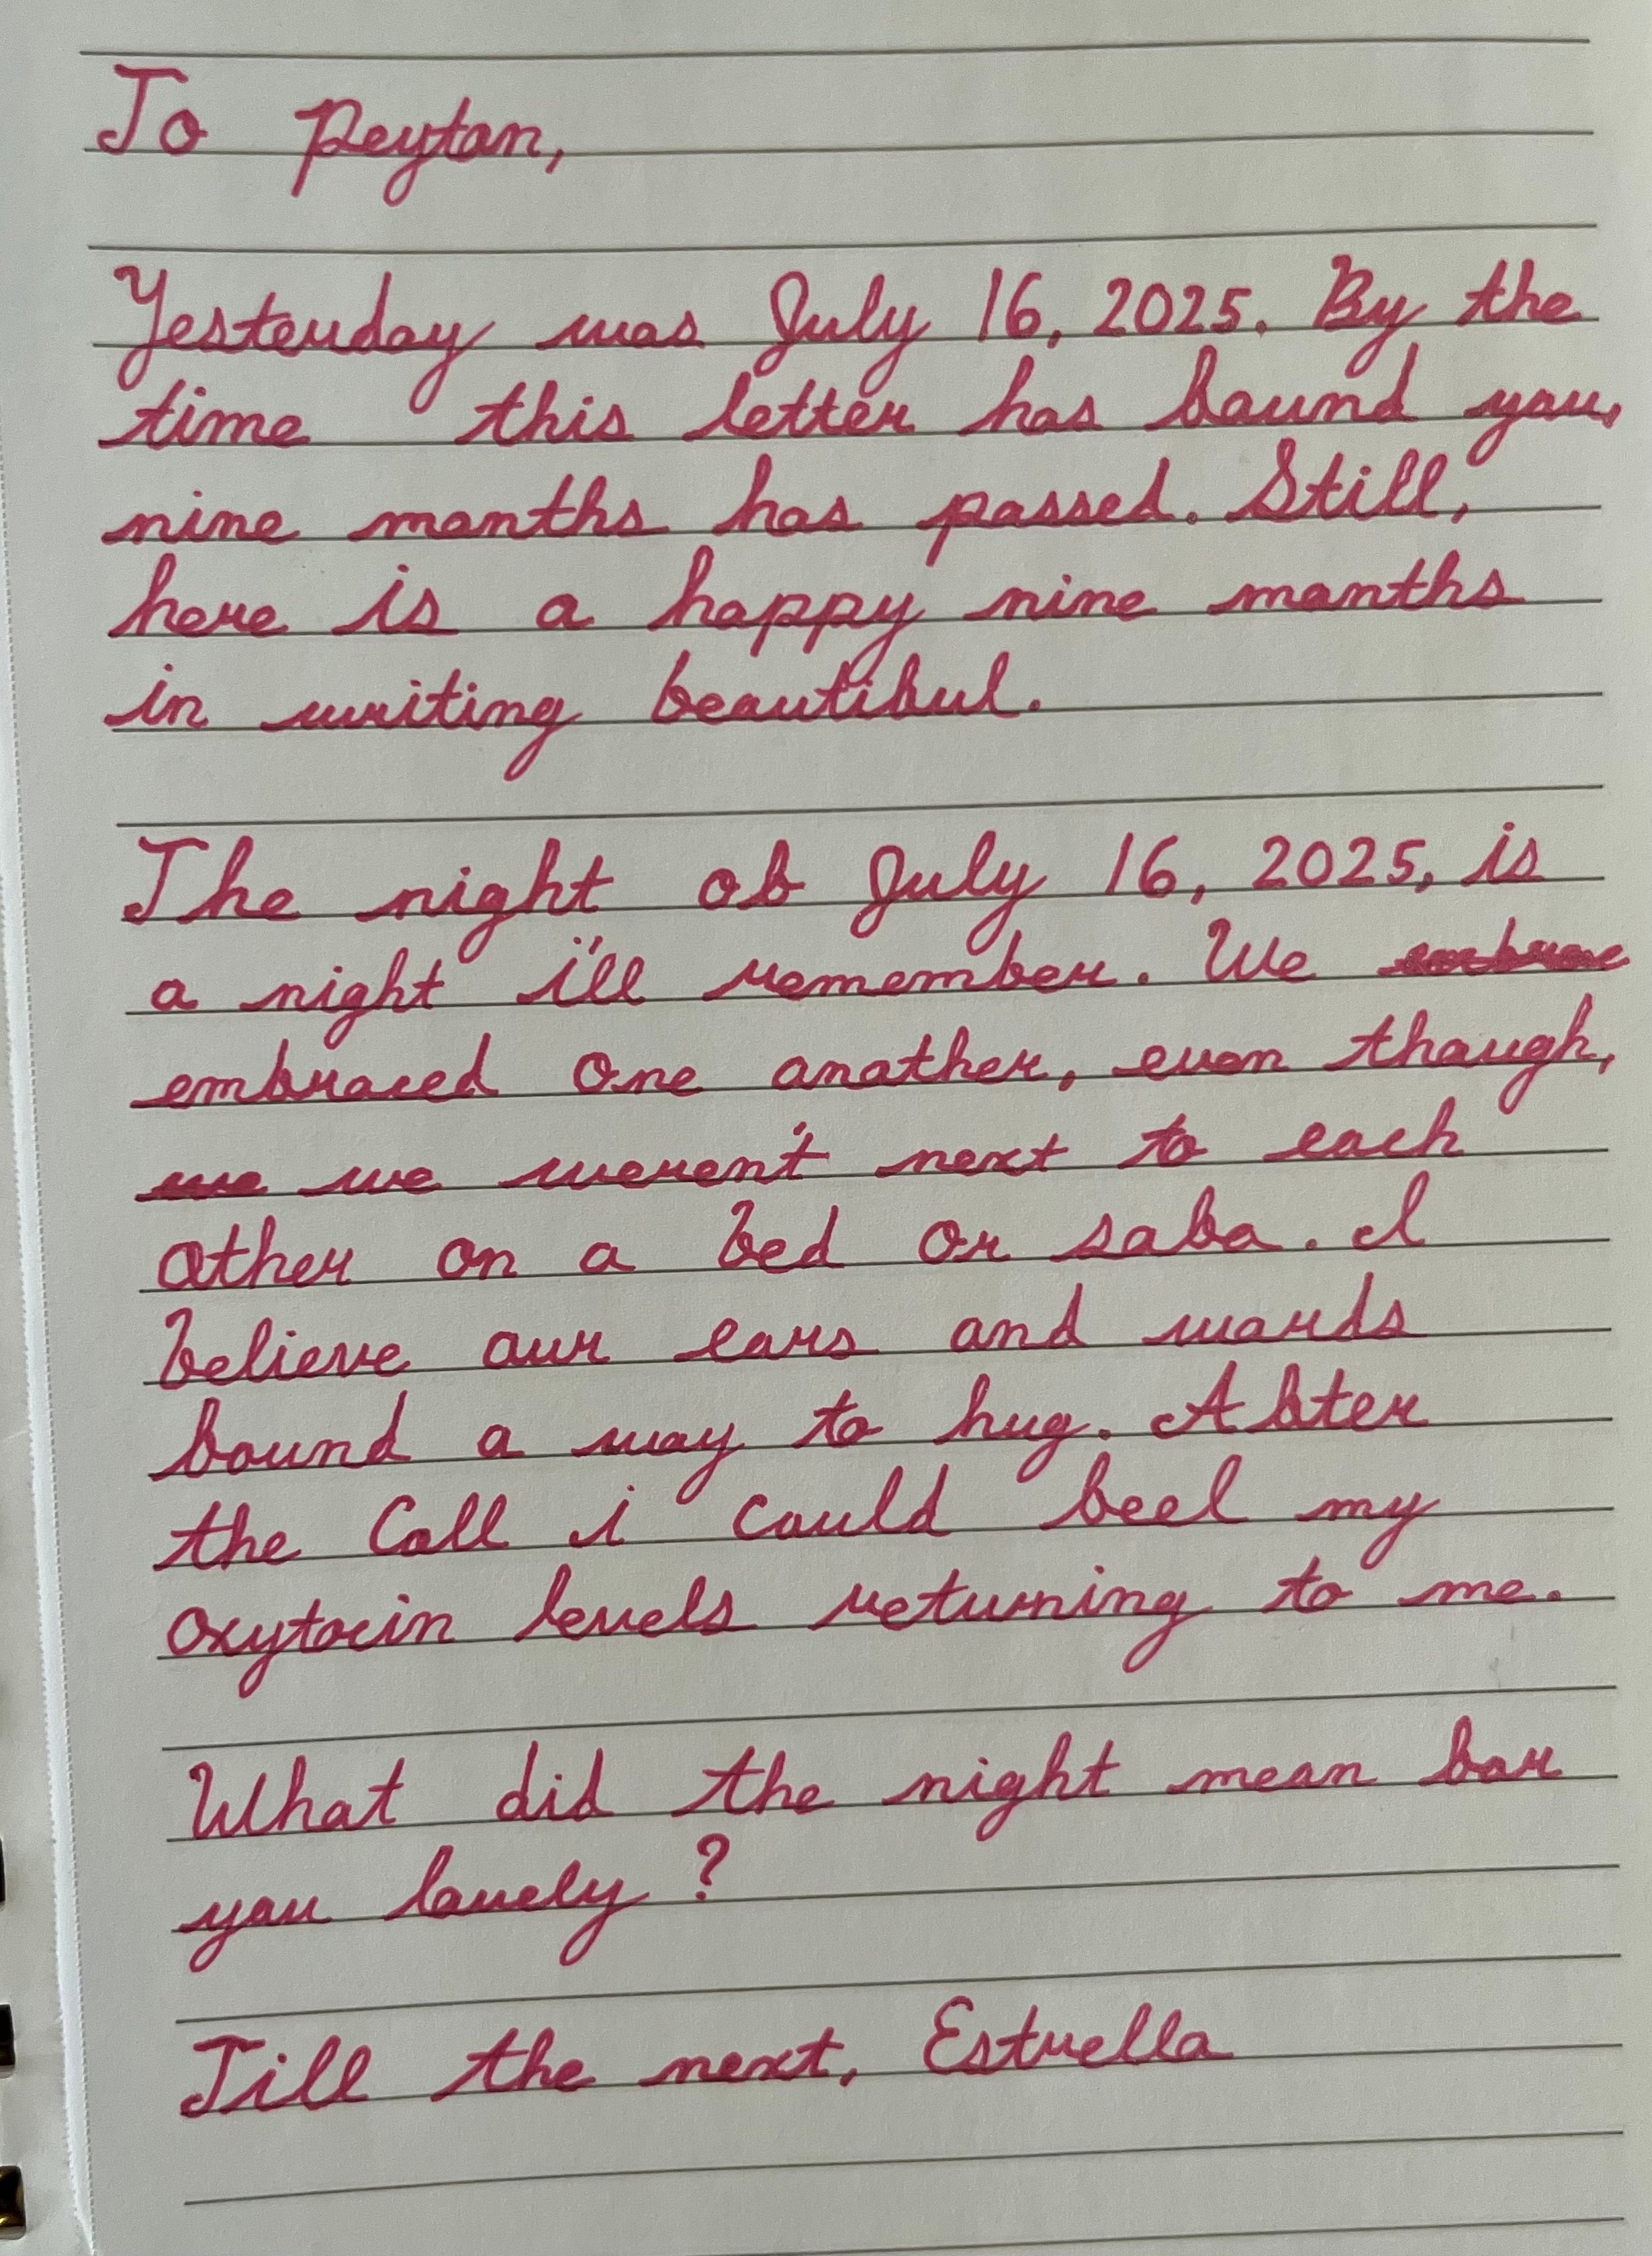 To Peyton,
Yesterday was July 16, 2025. By the
time this letter has found you,
nine months has passed. Still,
here is a happy nine months
in writing beautiful.
The night of July 16, 2025, is
a night i'll remember. We embrace
embraced one another, even though,
we we weren't next to each
other on a bed or sofa. I
believe our ears and words
found a way to hug. After
the call i could feel my
oxytocin levels returning to me.
What did the night mean for
you lovely?
Till the next, Estrella